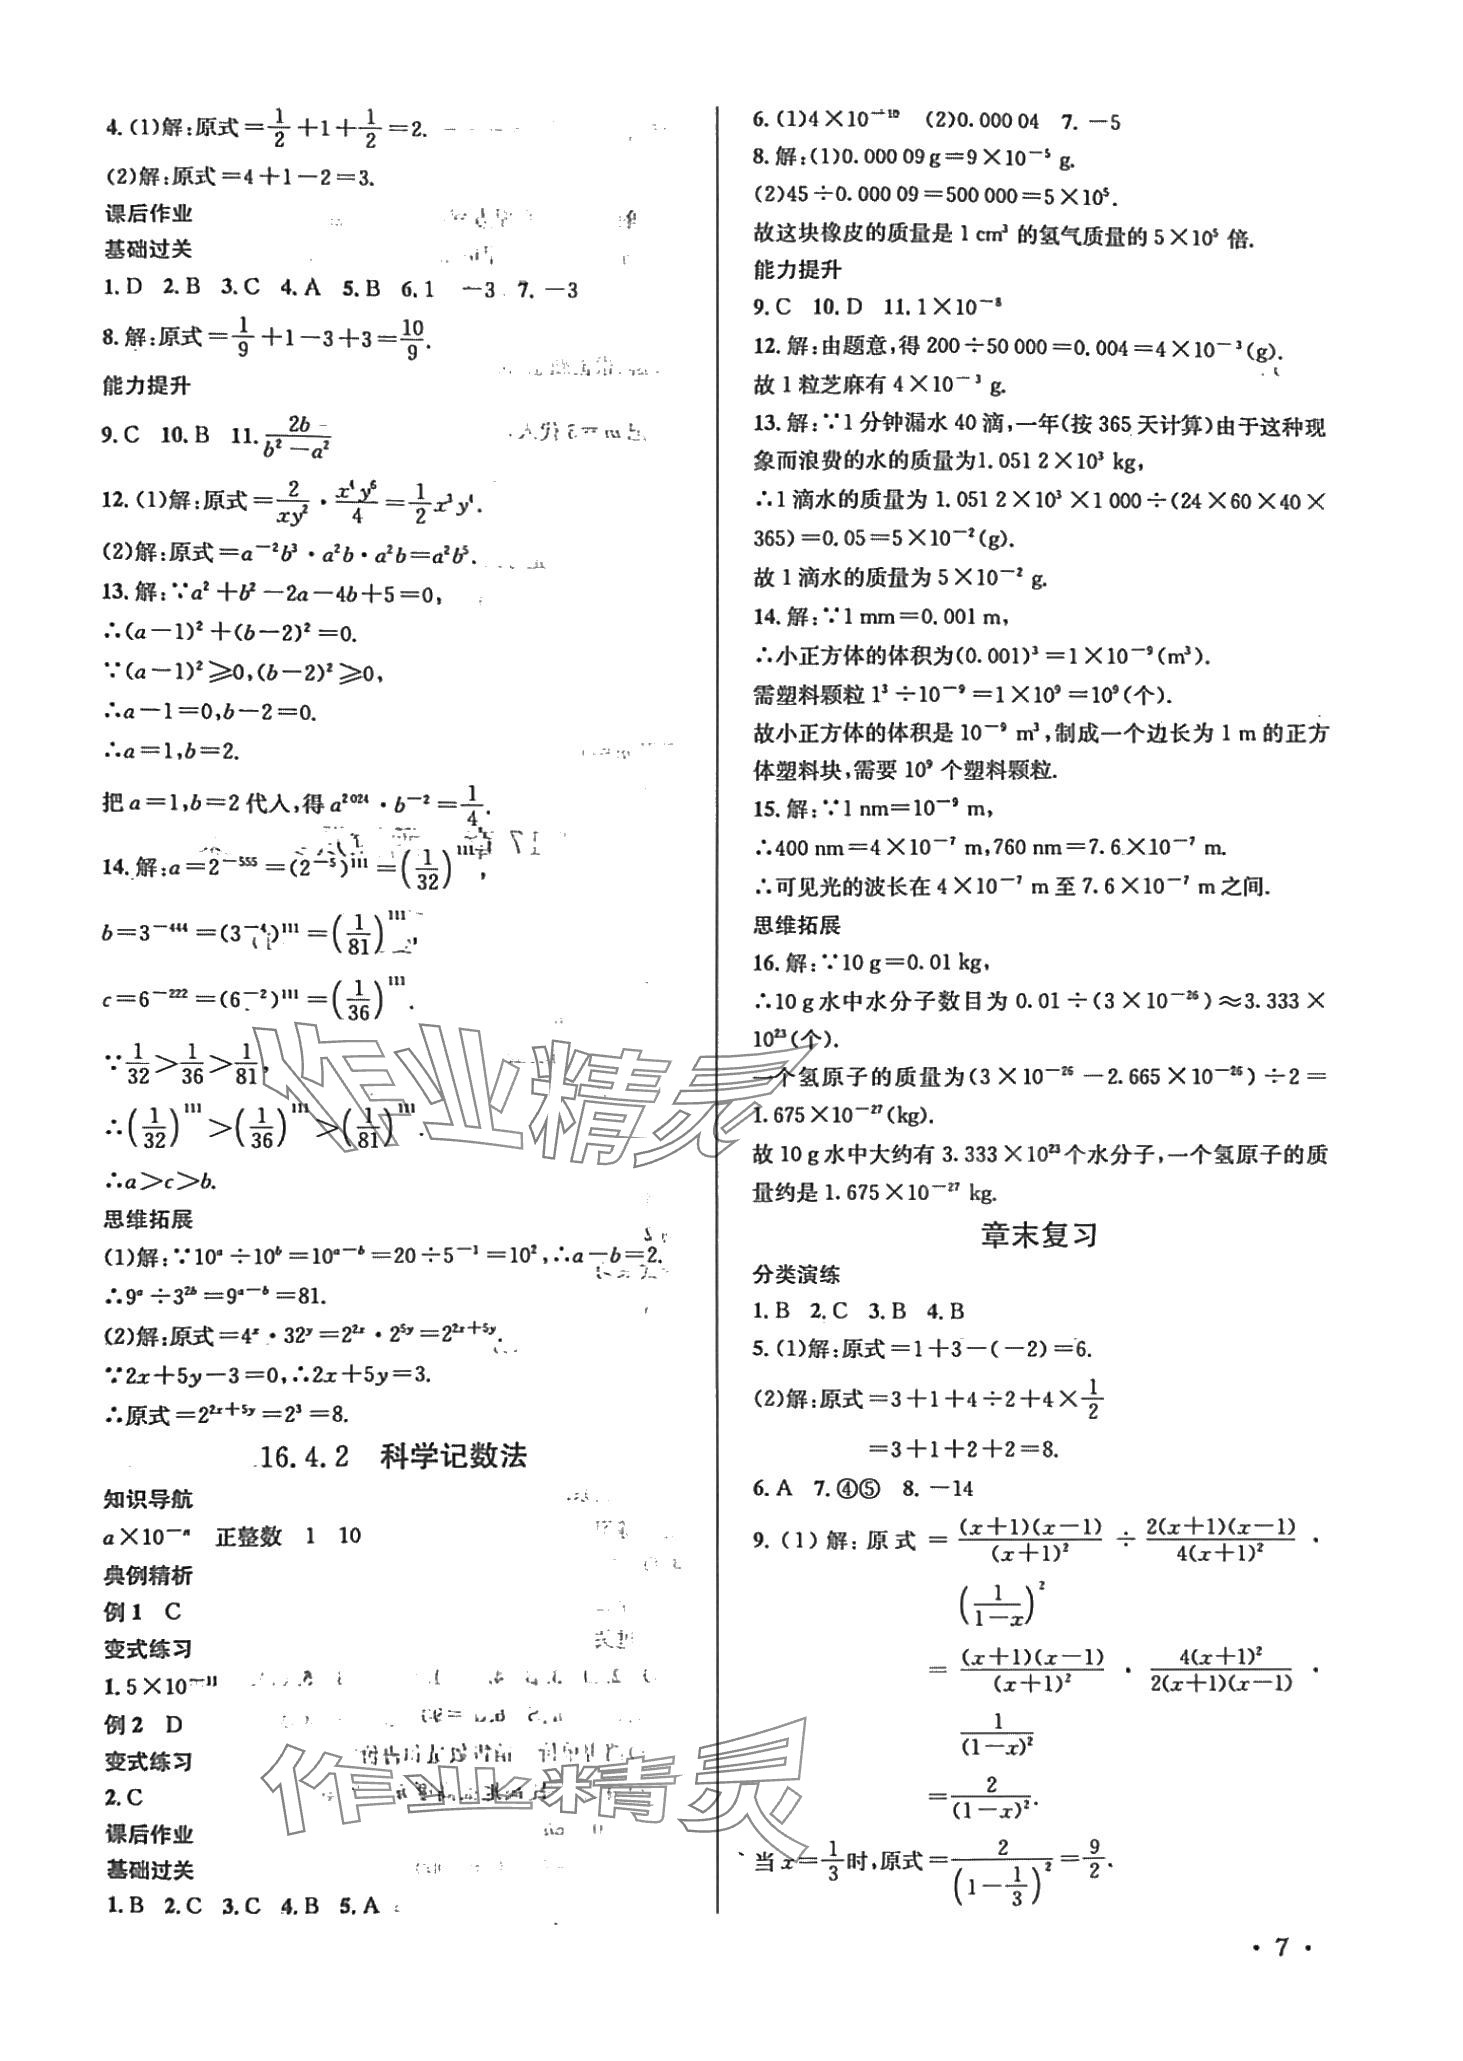 4.(1)解:原式=1/2+1+1/2=2.
(2)解:原式=4+1-2=3.
课后作业
基础过关
1.D 2.B 3.C 4.A 5.B 6.1 -3 7.-3
8.解:原式=1/9+1-3+3=10/9.
能力提升
9.C 10.B 11.2b/(b²-a²)
12.(1)解:原式=2/(xy²)·x⁴y⁶/4=1/2x³y⁴.
(2)解:原式=a⁻²b³·a²b·a²b=a²b⁵.
13.解:∵a²+b²-2a-4b+5=0,
∴(a-1)²+(b-2)²=0.
∵(a-1)²≥0,(b-2)²≥0,
∴a-1=0,b-2=0.
∴a=1,b=2.
把a=1,b=2代入,得a²⁰²⁴·b⁻²=1/4.
14.解:a=2⁻⁵⁵⁵=(2⁻⁵)¹¹¹=(1/32)¹¹¹,
b=3⁻⁴⁴⁴=(3⁻⁴)¹¹¹=(1/81)¹¹¹,
c=6⁻²²²=(6⁻²)¹¹¹=(1/36)¹¹¹.
∵1/32>1/36>1/81,
∴(1/32)¹¹¹>(1/36)¹¹¹>(1/81)¹¹¹.
∴a>c>b.
思维拓展
(1)解:∵10ᵃ÷10ᵇ=10ᵃ⁻ᵇ=20÷5⁻¹=10²,∴a-b=2.
∴9ᵃ÷3²ᵇ=9ᵃ⁻ᵇ=81.
(2)解:原式=4ˣ·32ʸ=2²ˣ·2⁵ʸ=2²ˣ⁺⁵ʸ.
∵2x+5y-3=0,∴2x+5y=3.
∴原式=2²ˣ⁺⁵ʸ=2³=8.
16.4.2 科学记数法
知识导航
a×10⁻ⁿ 正整数 1 10
典例精析
例1 C
变式练习
1.5×10⁻¹¹
例2 D
变式练习
2.C
课后作业
基础过关
1.B 2.C 3.C 4.B 5.A
6.(1)4×10⁻¹⁰ (2)0.000 04 7.-5
8.解:(1)0.000 09 g=9×10⁻⁵ g.
(2)45÷0.000 09=500 000=5×10⁵.
故这块橡皮的质量是1 cm³的氢气质量的5×10⁵倍.
能力提升
9.C 10.D 11.1×10⁻⁸
12.解:由题意,得200÷50 000=0.004=4×10⁻³(g).
故1粒芝麻有4×10⁻³ g.
13.解:∵1分钟漏水40滴,一年(按365天计算)由于这种现
象而浪费的水的质量为1.051 2×10³ kg,
∴1滴水的质量为1.051 2×10³×1 000÷(24×60×40×
365)=0.05=5×10⁻²(g).
故1滴水的质量为5×10⁻² g.
14.解:∵1 mm=0.001 m,
∴小正方体的体积为(0.001)³=1×10⁻⁹(m³).
需塑料颗粒1³÷10⁻⁹=1×10⁹=10⁹(个).
故小正方体的体积是10⁻⁹ m³,制成一个边长为1 m的正方
体塑料块,需要10⁹个塑料颗粒.
15.解:∵1 nm=10⁻⁹ m,
∴400 nm=4×10⁻⁷ m,760 nm=7.6×10⁻⁷ m.
∴可见光的波长在4×10⁻⁷ m至7.6×10⁻⁷ m之间.
思维拓展
16.解:∵10 g=0.01 kg,
∴10 g水中水分子数目为0.01÷(3×10⁻²⁶)≈3.333×
10²³(个).
一个氢原子的质量为(3×10⁻²⁶-2.665×10⁻²⁶)÷2=
1.675×10⁻²⁷(kg).
故10 g水中大约有3.333×10²³个水分子,一个氢原子的质
量约是1.675×10⁻²⁷ kg.
章末复习
分类演练
1.B 2.C 3.B 4.B
5.(1)解:原式=1+3-(-2)=6.
(2)解:原式=3+1+4÷2+4×1/2
=3+1+2+2=8.
6.A 7.④⑤ 8.-14
9.(1)解:原式=(x+1)(x-1)/(x+1)²÷2(x+1)(x-1)/4(x+1)²·
(1/(1-x))²
=(x+1)(x-1)/(x+1)²·4(x+1)²/2(x+1)(x-1)·
1/(1-x)²
=2/(1-x)².
当x=1/3时,原式=2/(1-1/3)²=9/2.
·7·
作业精灵
作业精灵